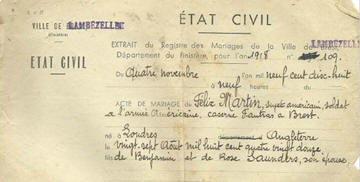 ÉTAT CIVIL
VILLE DE LAMBEZELLEC
(FINISTÈRE)
ÉTAT CIVIL
EXTRAIT du Registre des Mariages de la Ville de LAMBEZELLEC
Département du Finistère, pour l'an 1918 109.
Du Quatre novembre l'an mil neuf cent dix-huit
à neuf heures du
ACTE DE MARIAGE de Félix Martin, sujet américain, soldat
à l'armée Américaine, caserne Fautras à Brest.
né à Londres Département d Angleterre
le vingt-sept Août mil huit cent quatre vingt douze
fils de Benjamin et de Rose Saunders, son épouse.